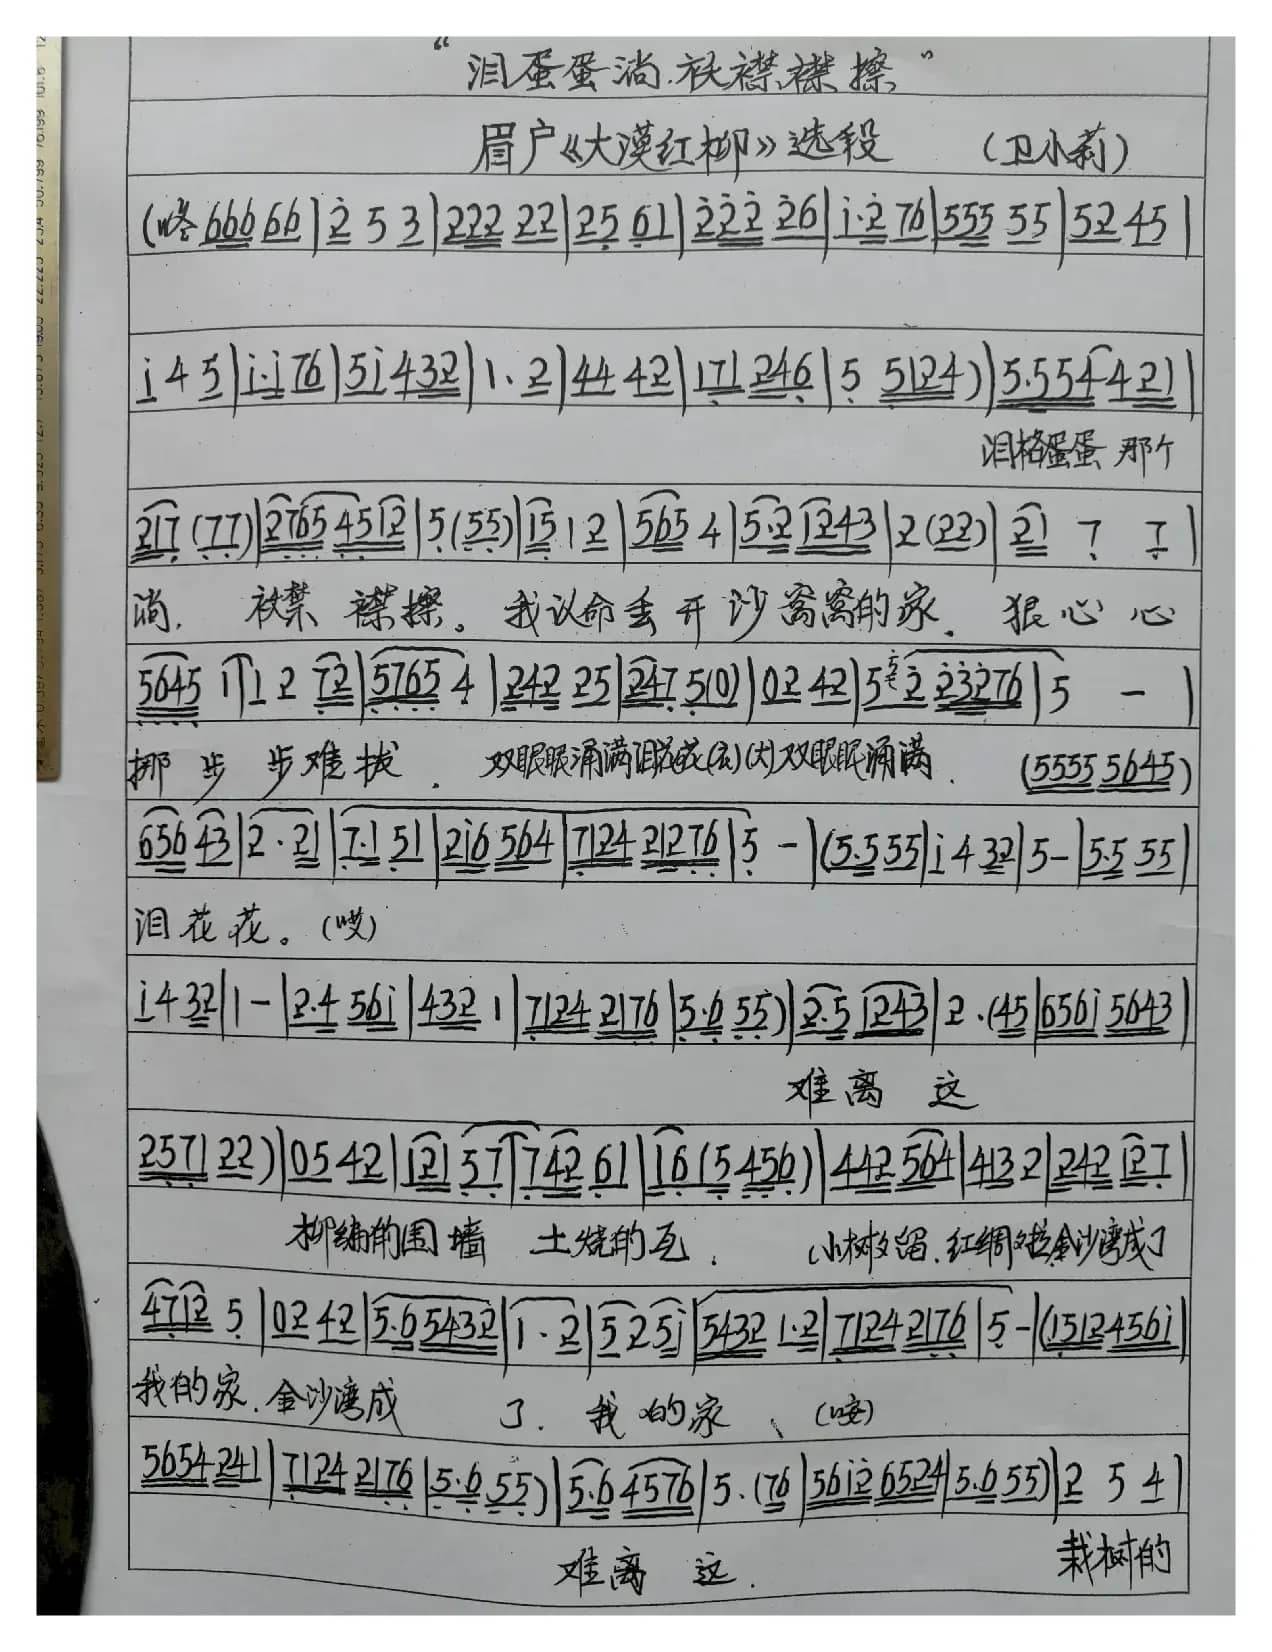 "泪蛋蛋淌.衣襟襟擦"
眉户《大漠红柳》选段 (卫小莉)
(咚 666 66|2̇ 5 3|222 22|25 61|2̇2̇2̇ 2̇6|i·2̇ 76|555 55|52 45|
i 4 5|i·i 76|5i 432|1. 2|44 42|171 246|5 5124)|5.554 421|
泪格蛋蛋 那个
217 (77)|2765 4512|5(55)|15 1 2|565 4|5·2 1243|2(22)|21 7 7|
淌. 衣襟 襟擦。我认命丢开沙窝窝的家. 狠心心
5645 1|1 2 72|5765 4|242 25|247 5(0)|02 42|5 2̇ 2̇3̇2̇76|5 - |
挪步步难拔. 双眼眼涌满泪花花(衣)(大)双眼眼涌满. (5555 5645)
656 43|2·21|7·1 51|2i6 564|7124 21276|5 -|(5.5 55|i 4 32|5-|5.5 55|
泪花花。(哎)
i 4 32|1 -|2.4 56i|432 1|7124 2176|5.6 55)|2.5 1243|2.(45|656i 5643|
难离这
2571 22)|05 42|121 57|742 61|16 (5 456)|442 564|413 2|242 127|
柳编的围墙 土烧的瓦. 小树文留.红绸文拉金沙湾成了
4712 5|02 42|5.6 5432|1·2|5 2 5i|5432 1·2|7124 2176|5-|(1512 456i|
我的家.金沙湾成 了. 我的家、(哎)
5654 241|7124 2176|5·6 55)|5·6 4576|5.(76|56i2̇ 6524|5.6 55)|2 5 4|
难离这. 栽树的